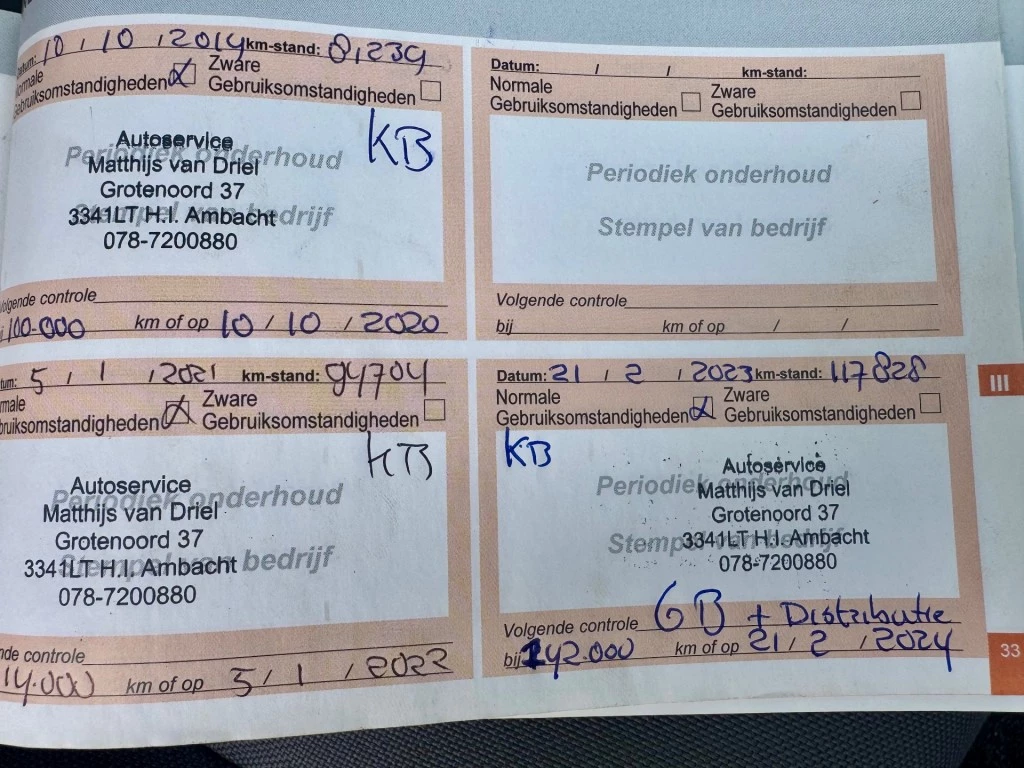 Datum: 10 / 10 / 2019 km-stand: 81239
Normale Zware
Gebruiksomstandigheden Gebruiksomstandigheden
KB
Periodiek onderhoud
Stempel van bedrijf
Autoservice
Matthijs van Driel
Grotenoord 37
3341LT H.I. Ambacht
078-7200880
Volgende controle
100.000 km of op 10 / 10 / 2020
Datum: / / km-stand:
Normale Zware
Gebruiksomstandigheden Gebruiksomstandigheden
Periodiek onderhoud
Stempel van bedrijf
Volgende controle
bij km of op / /
tum: 5 / 1 / 2021 km-stand: 94704
male Zware
bruiksomstandigheden Gebruiksomstandigheden
KB
Periodiek onderhoud
Stempel van bedrijf
Autoservice
Matthijs van Driel
Grotenoord 37
3341LT H.I. Ambacht
078-7200880
nde controle
14.000 km of op 5 / 1 / 2022
Datum: 21 / 2 / 2023 km-stand: 117828
Normale Zware
Gebruiksomstandigheden Gebruiksomstandigheden
KB
Periodiek onderhoud
Stempel van bedrijf
Autoservice
Matthijs van Driel
Grotenoord 37
3341LT H.I. Ambacht
078-7200880
Volgende controle GB + Distributie
bij 142.000 km of op 21 / 2 / 2024
III
33